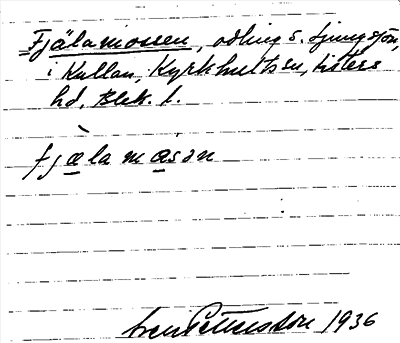 Fjälamossen, odling s. Ljungsjön,
i Kullan, Kyrkhults sn, Listers
hd. Blek. l.
fjælamåsan
Pettersson 1936